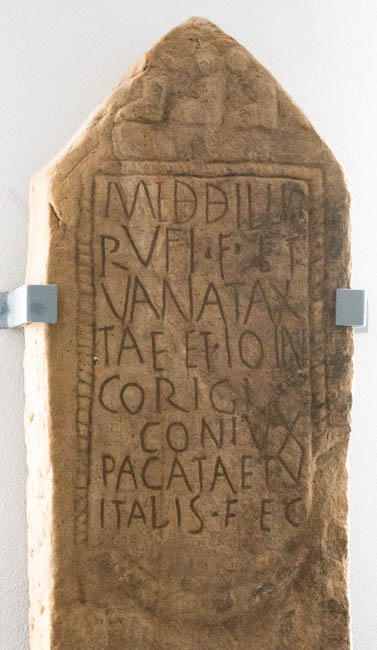 MEÐÐILLE
RVFI·F·ET
VANATAX
TAE ET·IOIN
CORIGI
CONIVX
PACATAETV
ITALIS·FEC